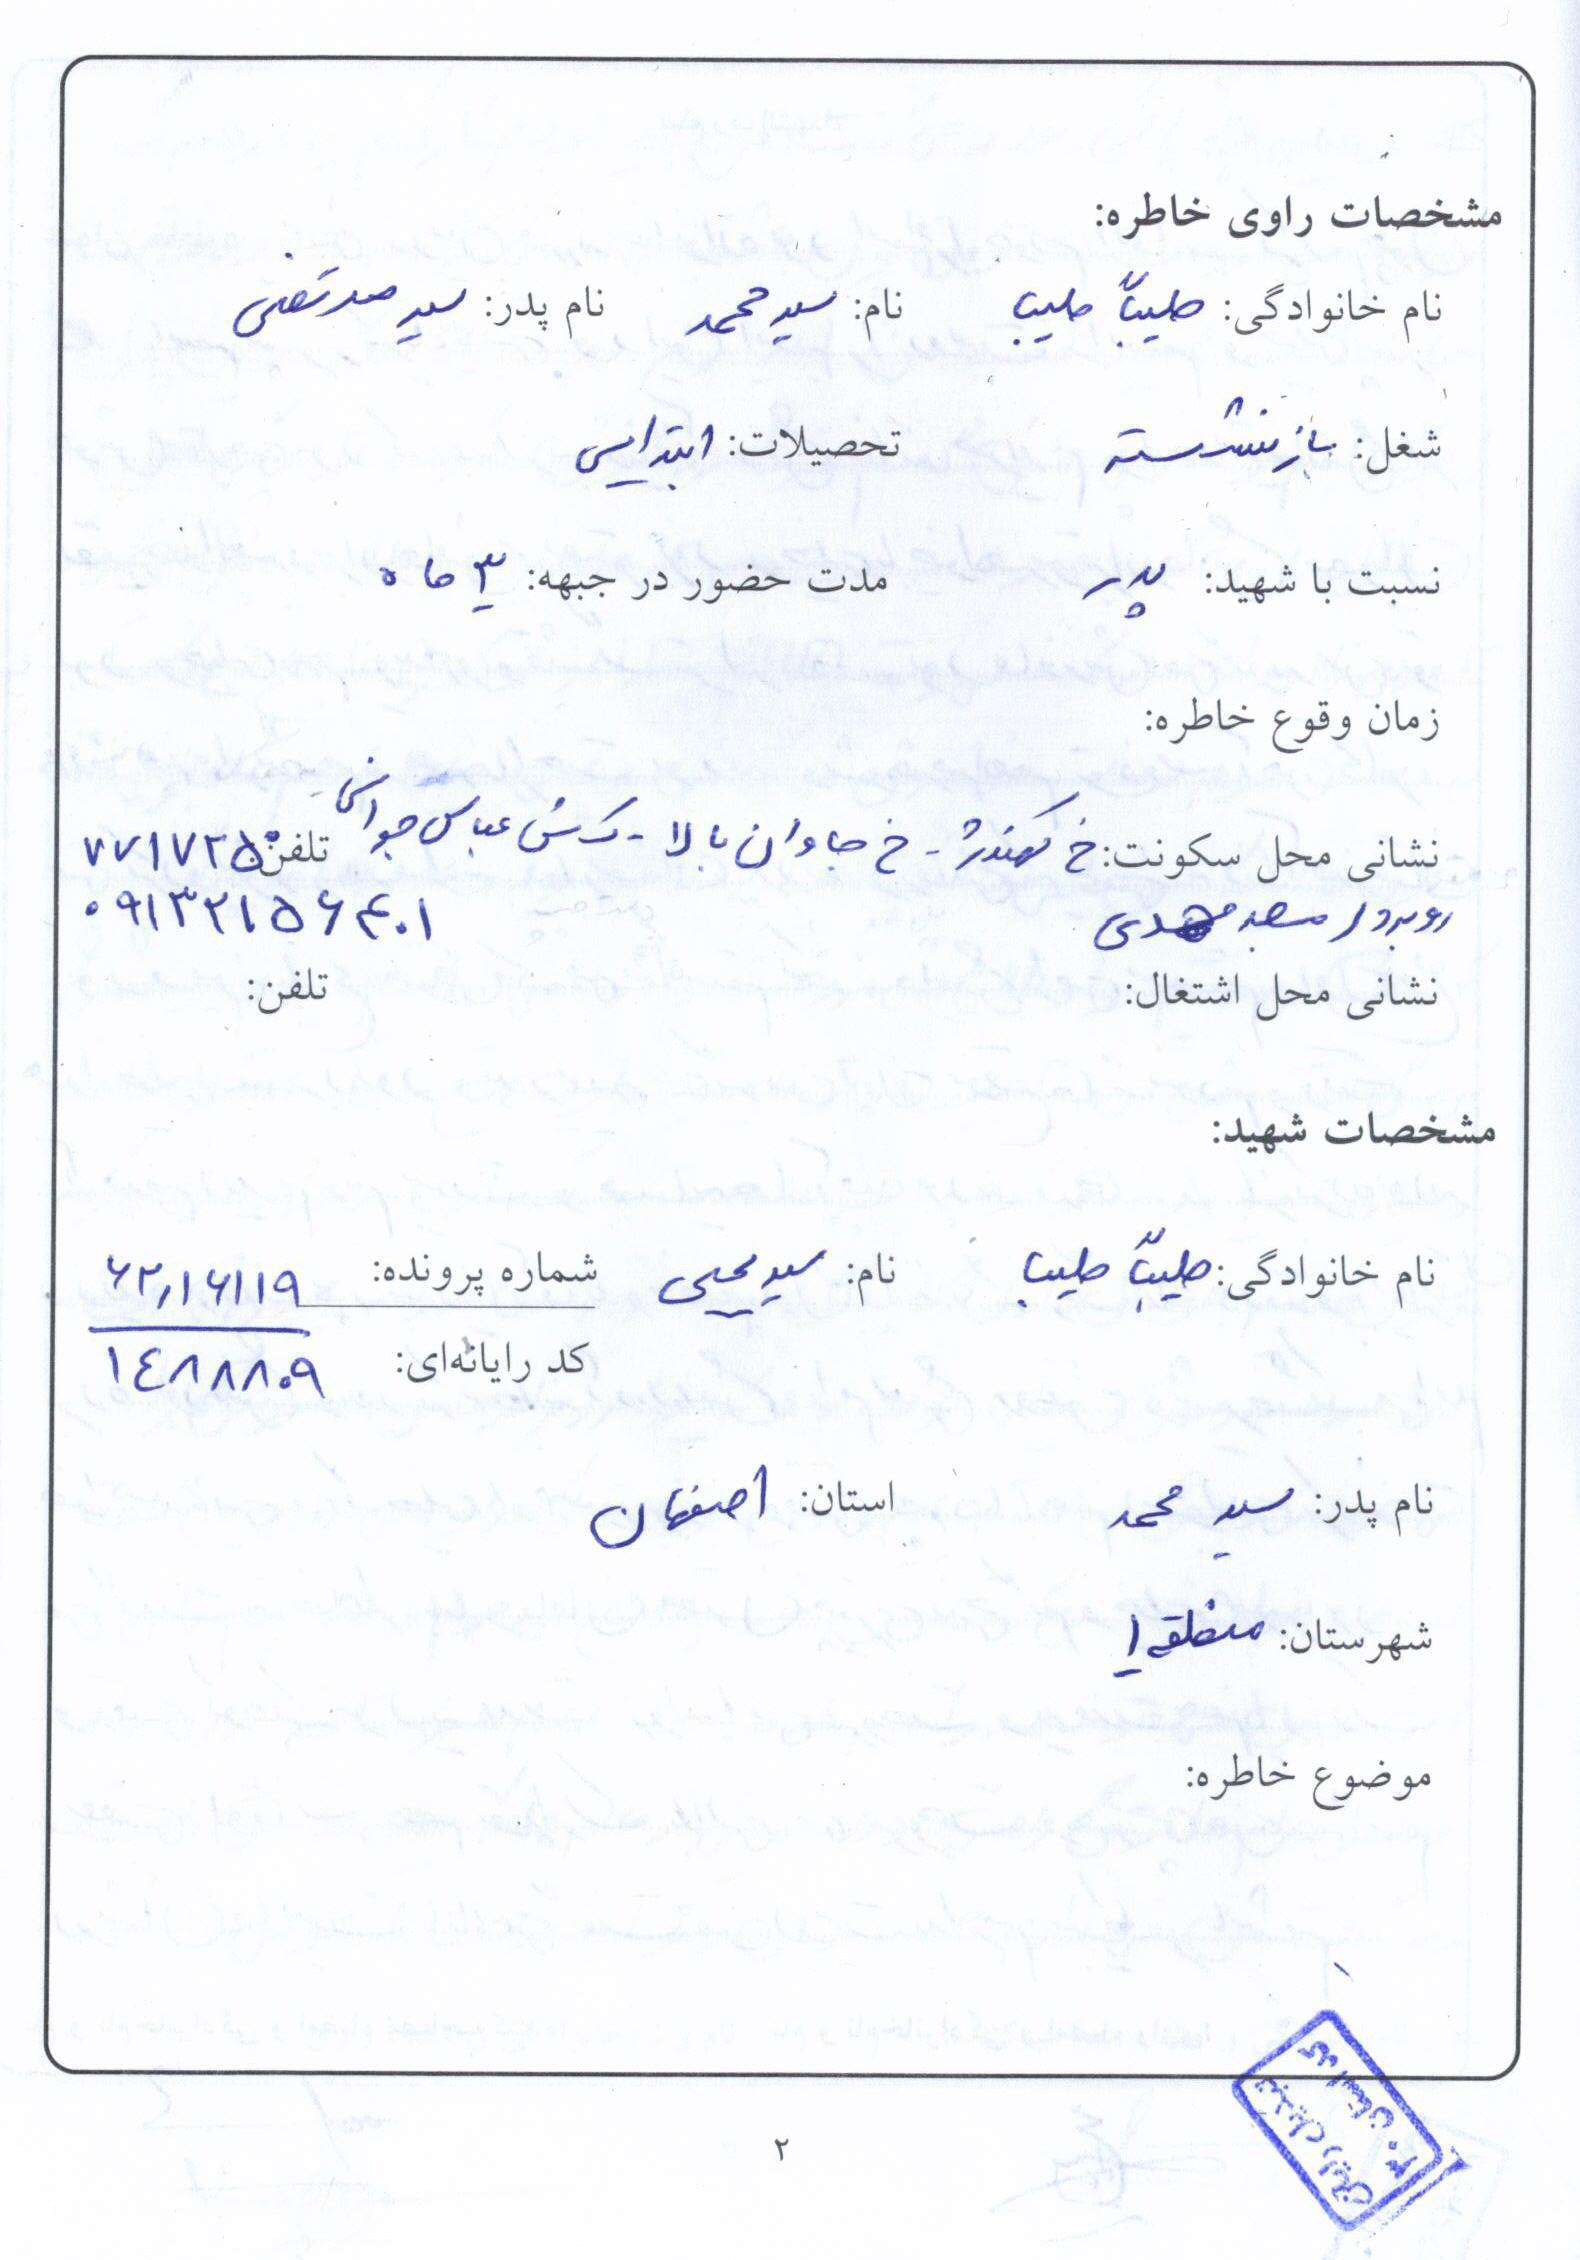 مشخصات راوی خاطره:
نام خانوادگی: طیبّ طیب نام: سید محمد نام پدر: سید مرتضی
شغل: بازنشسته تحصیلات: ابتدایی
نسبت با شهید: پدر مدت حضور در جبهه: ۳ ماه
زمان وقوع خاطره:
نشانی محل سکونت: خ کهندژ - خ جاوان بالا - عباس جوانی تلفن: ۷۷۱۷۲۵۰
روبروی مسجد مهدی ۰۹۱۳۲۱۵۶۴۰۱
نشانی محل اشتغال: تلفن:
مشخصات شهید:
نام خانوادگی: طیبّ طیب نام: سید یحیی شماره پرونده: ۶۲,۱۶۱۱۹
کد رایانه‌ای: ۱۴۸۸۸۰۹
نام پدر: سید محمد استان: اصفهان
شهرستان: منطقه ۱
موضوع خاطره:
۲